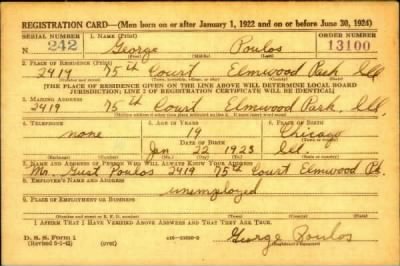 REGISTRATION CARD—(Men born on or after January 1, 1922 and on or before June 30, 1924)
SERIAL NUMBER 1. NAME (Print) ORDER NUMBER
242 George Poulos 13100
(First) (Middle) (Last)
2. PLACE OF RESIDENCE (Print)
2419 75th Court Elmwood Park Ill.
(Number and street) (Town, township, village, or city) (County) (State)
[THE PLACE OF RESIDENCE GIVEN ON THE LINE ABOVE WILL DETERMINE LOCAL BOARD
JURISDICTION; LINE 2 OF REGISTRATION CERTIFICATE WILL BE IDENTICAL]
3. MAILING ADDRESS
2419 75th Court Elmwood Park, Ill.
4. TELEPHONE 5. AGE IN YEARS 6. PLACE OF BIRTH
none 19 Chicago
DATE OF BIRTH
Jan 22 1923 Ill.
(Exchange) (Number) (Mo.) (Day) (Yr.) (State or country)
7. NAME AND ADDRESS OF PERSON WHO WILL ALWAYS KNOW YOUR ADDRESS
Mr. Gust Poulos 2419 75th Court Elmwood Pk.
8. EMPLOYER'S NAME AND ADDRESS
unemployed
9. PLACE OF EMPLOYMENT OR BUSINESS
(Number and street or R. F. D. number) (Town) (County) (State)
I AFFIRM THAT I HAVE VERIFIED ABOVE ANSWERS AND THAT THEY ARE TRUE.
D. S. S. Form 1
(Revised 6-9-42) (over) George Poulos
(Registrant's signature)